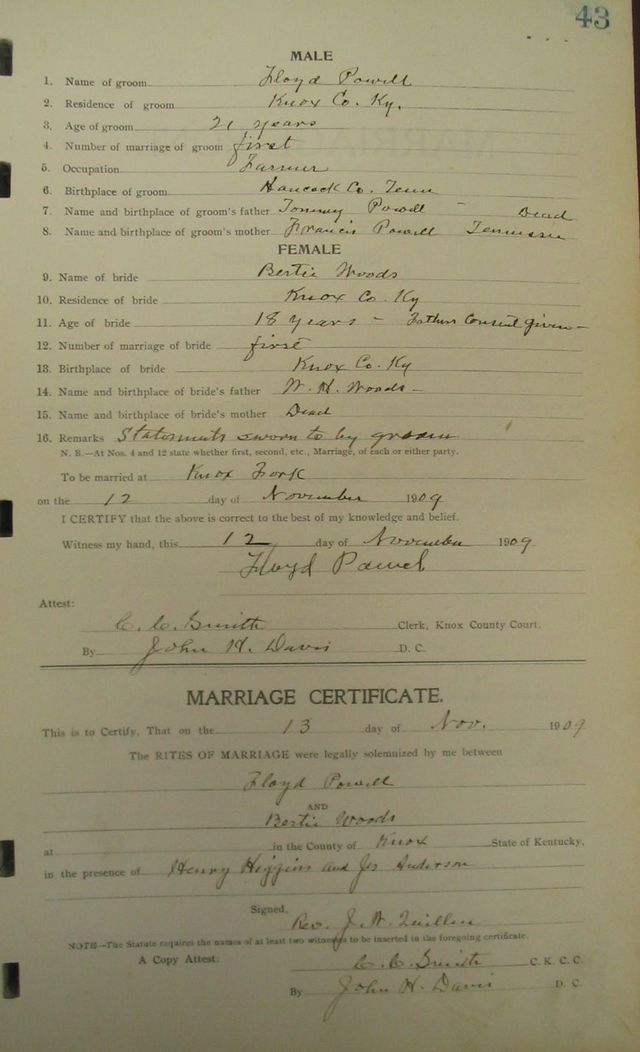 43
MALE
1. Name of groom Floyd Powell
2. Residence of groom Knox Co. Ky.
3. Age of groom 21 years
4. Number of marriage of groom first
5. Occupation Farmer
6. Birthplace of groom Hancock Co. Tenn
7. Name and birthplace of groom's father Tommy Powell - Dead
8. Name and birthplace of groom's mother Francis Powell Tennessee
FEMALE
9. Name of bride Bertie Woods
10. Residence of bride Knox Co. Ky
11. Age of bride 18 years - Fathers Consent given -
12. Number of marriage of bride first
13. Birthplace of bride Knox Co. Ky
14. Name and birthplace of bride's father W. H. Woods -
15. Name and birthplace of bride's mother Dead
16. Remarks Statements sworn to by groom
N. B.—At Nos. 4 and 12 state whether first, second, etc., Marriage, of each or either party.
To be married at Knox Fork
on the 12 day of November 1909
I CERTIFY that the above is correct to the best of my knowledge and belief.
Witness my hand, this 12 day of November 1909
Floyd Powel
Attest:
C. C. Smith Clerk, Knox County Court.
By John H. Davis D. C.
MARRIAGE CERTIFICATE.
This is to Certify, That on the 13 day of Nov. 1909
The RITES OF MARRIAGE were legally solemnized by me between
Floyd Powell
AND
Bertie Woods
at in the County of Knox State of Kentucky,
in the presence of Henry Higgins and Jes Anderson
Signed, Rev. J. W. Quillen
NOTE—The Statute requires the names of at least two witnesses to be inserted in the foregoing certificate.
A Copy Attest: C. C. Smith C. K. C. C.
By John H. Davis D. C.